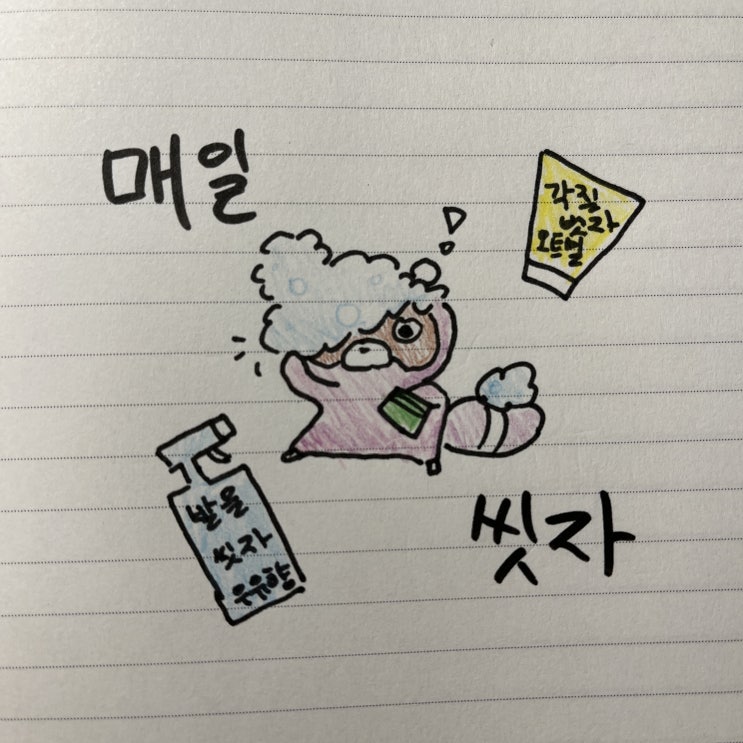 매일
각질
벗자
오트밀
발을
씻자
우유향
씻자